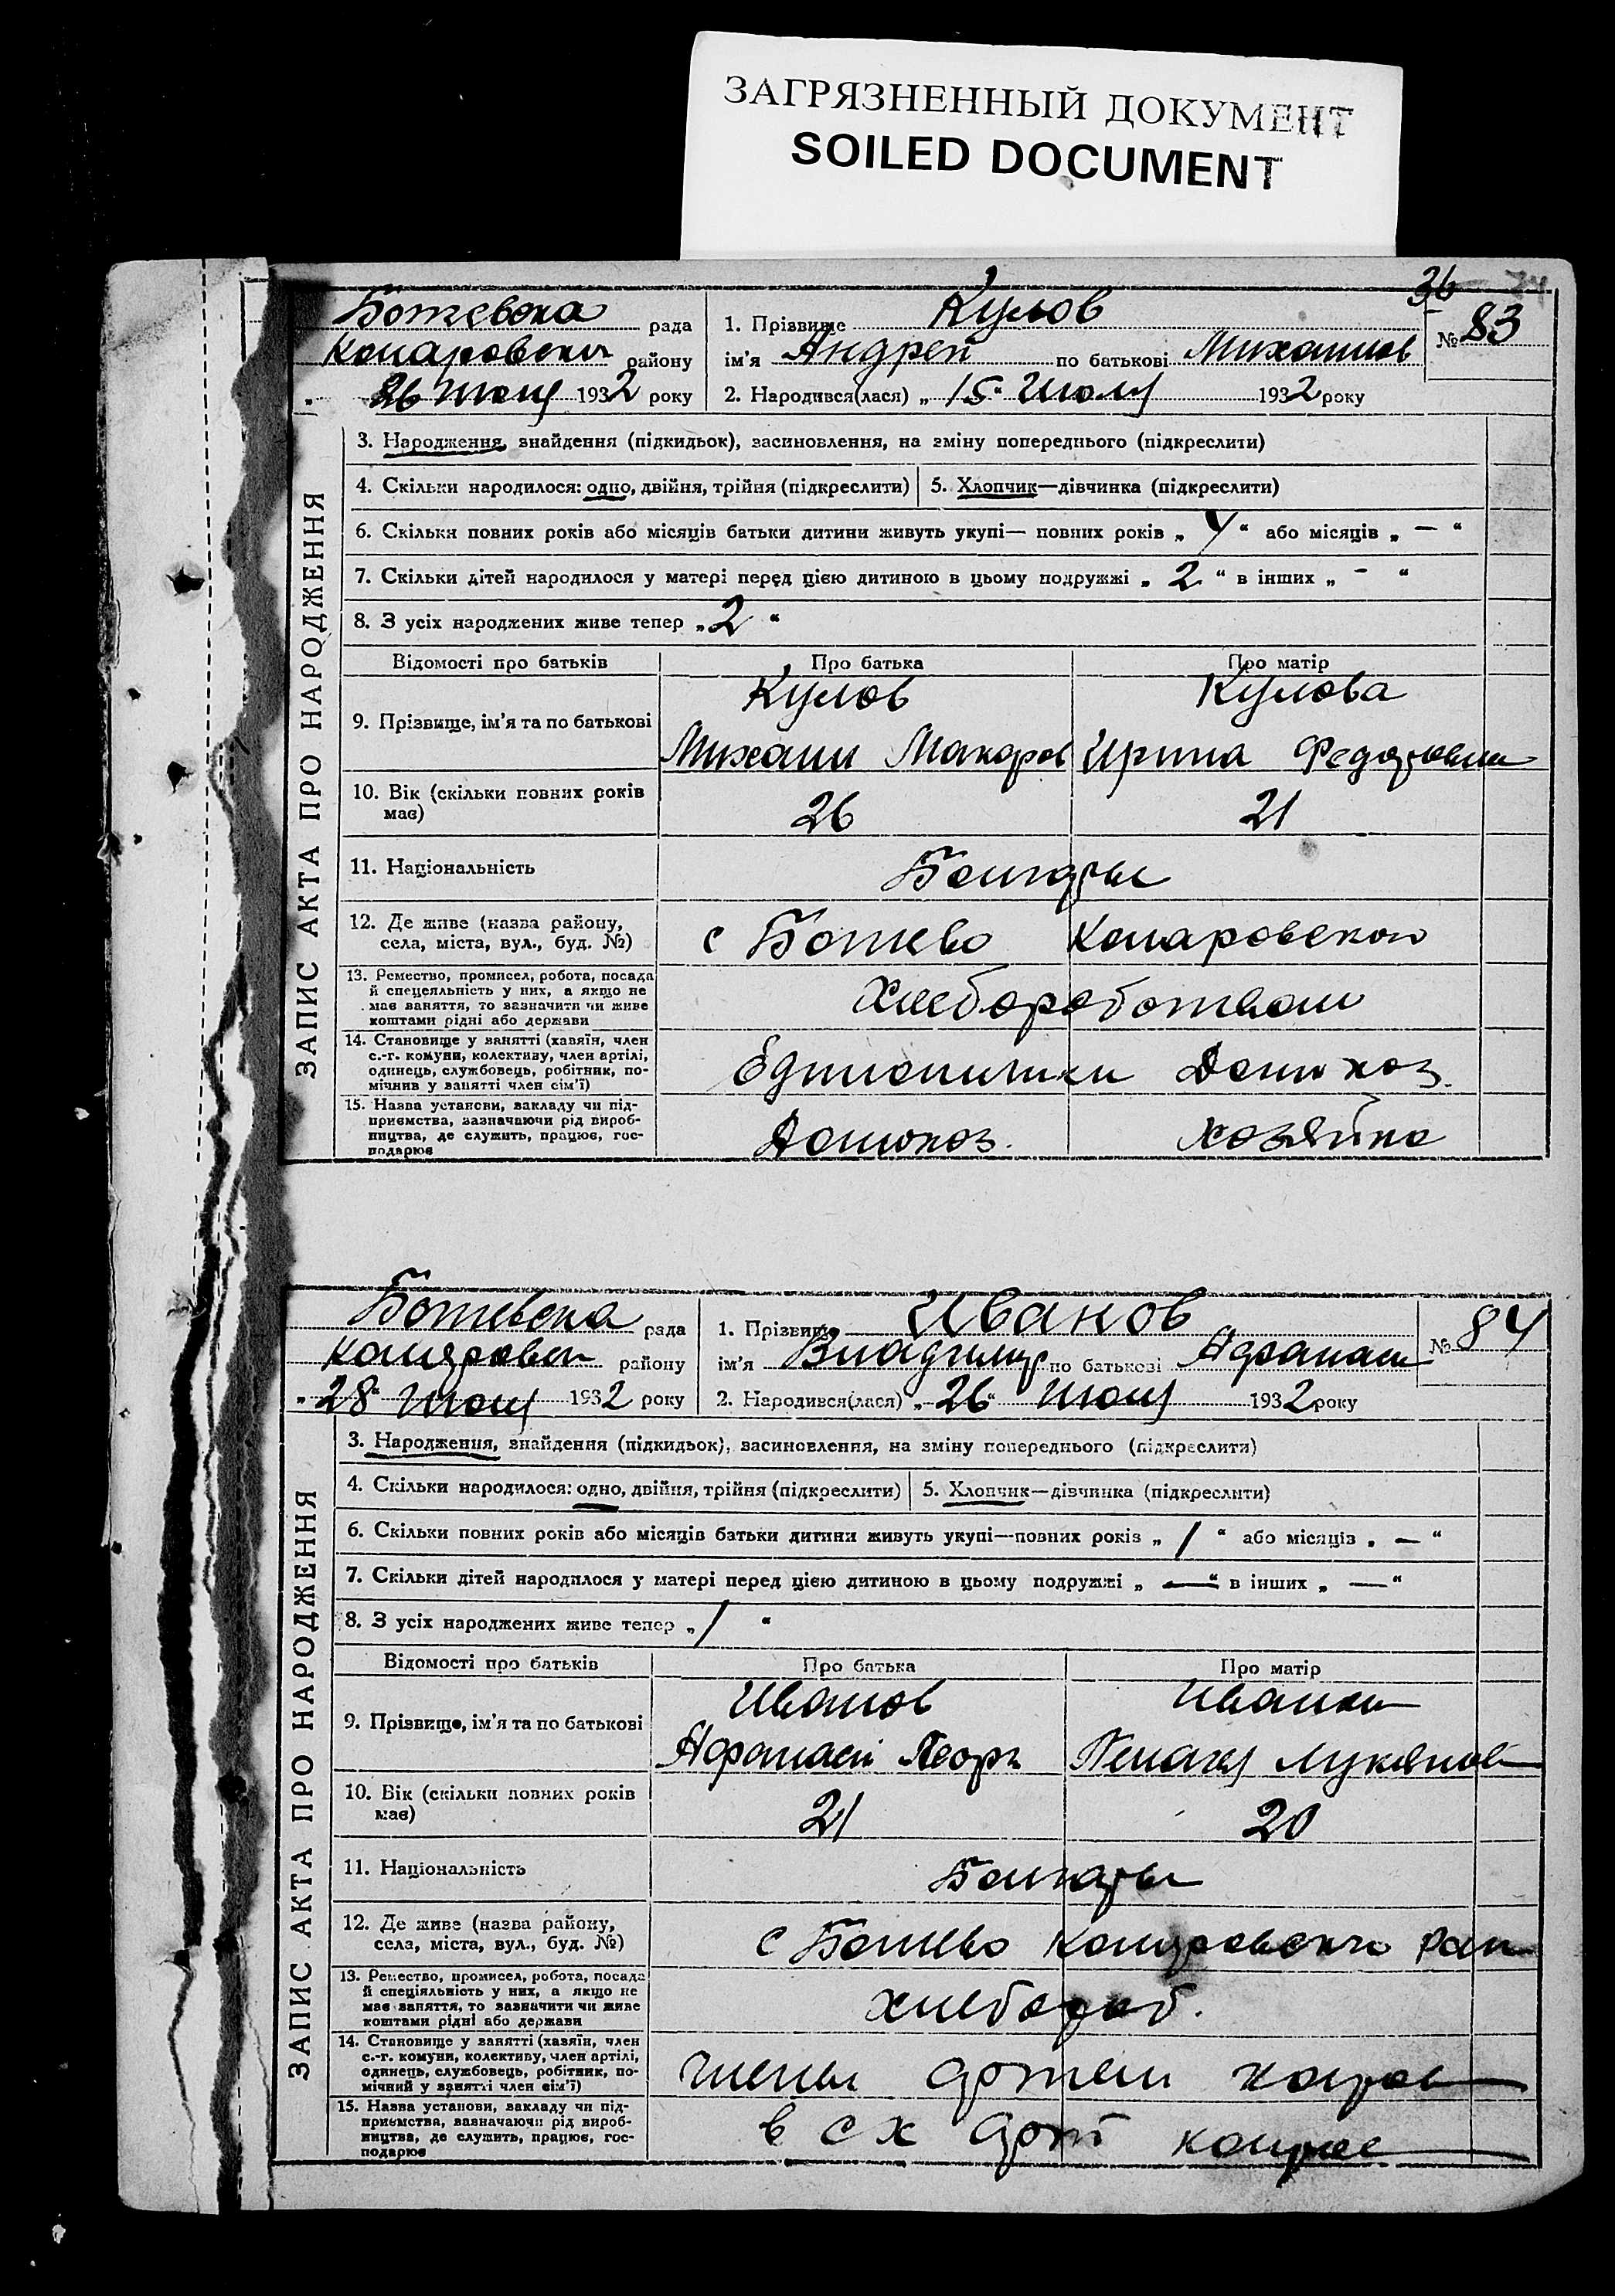 ЗАГРЯЗНЕННЫЙ ДОКУМЕНТ
SOILED DOCUMENT
36
Ботевска рада
района
26 1932 року
1. Прізвище Кулов
ім'я Андрей по батькові Михаилов
2. Народився(лася) „ 15 “ Июля 1932 року
№ 83
ЗАПИС АКТА ПРО НАРОДЖЕННЯ
3. Народження, знайдення (підкидьок), засиновлення, на зміну попереднього (підкреслити)
4. Скільки народилося: одно, двійня, трійня (підкреслити) 5. Хлопчик—дівчинка (підкреслити)
6. Скільки повних років або місяців батьки дитини живуть укупі— повних років „ 4 “ або місяців „ — “
7. Скільки дітей народилося у матері перед цією дитиною в цьому подружжі „ 2 “ в інших „ - “
8. З усіх народжених живе тепер „ 2 “
Відомості про батьків Про батька Про матір
9. Прізвище, ім'я та по батькові
Кулов Кулова
Михаил Макаров Ирина
10. Вік (скільки повних років має) 26 21
11. Національність Болгары
12. Де живе (назва району, села, міста, вул., буд. №) с Ботево
13. Ремество, промисел, робота, посада
й спецеяльність у них, а якщо не
має заняття, то зазначити чи живе
коштами рідні або держави
14. Становище у занятті (хазяїн, член
с.-г. комуни, колективу, член артілі,
одинець, службовець, робітник, по-
мічник у занятті член сім'ї)
15. Назва установи, закладу чи під-
приємства, зазначаючи рід вироб-
ництва, де служить, працює, гос-
подарює
Домохоз. хозяйка
Ботевска рада
району
„ 28 “ 1932 року
1. Прізвище Иванов
ім'я Владимир по батькові
2. Народився(лася) „ 26 “ 1932 року
№ 84
ЗАПИС АКТА ПРО НАРОДЖЕННЯ
3. Народження, знайдення (підкидьок), засиновлення, на зміну попереднього (підкреслити)
4. Скільки народилося: одно, двійня, трійня (підкреслити) 5. Хлопчик—дівчинка (підкреслити)
6. Скільки повних років або місяців батьки дитини живуть укупі—повних років „ 1 “ або місяців „ — “
7. Скільки дітей народилося у матері перед цією дитиною в цьому подружжі „ — “ в інших „ — “
8. З усіх народжених живе тепер „ 1 “
Відомості про батьків Про батька Про матір
9. Прізвище, ім'я та по батькові
Иванов
Афанасий
10. Вік (скільки повних років має) 21 20
11. Національність Болгары
12. Де живе (назва району, села, міста, вул., буд. №) с Ботево
13. Ремество, промисел, робота, посада
й спеціяльність у них, а якщо не
має заняття, то зазначити чи живе
коштами рідні або держави
хлебороб.
14. Становище у занятті (хазяїн, член
с.-г. комуни, колективу, член артілі,
одинець, службовець, робітник, по-
мічний у занятті член сім'ї)
члены артели
15. Назва установи, закладу чи під-
приємства, зазначаючи рід вироб-
ництва, де служить, працює, гос-
подарює
в с х арт